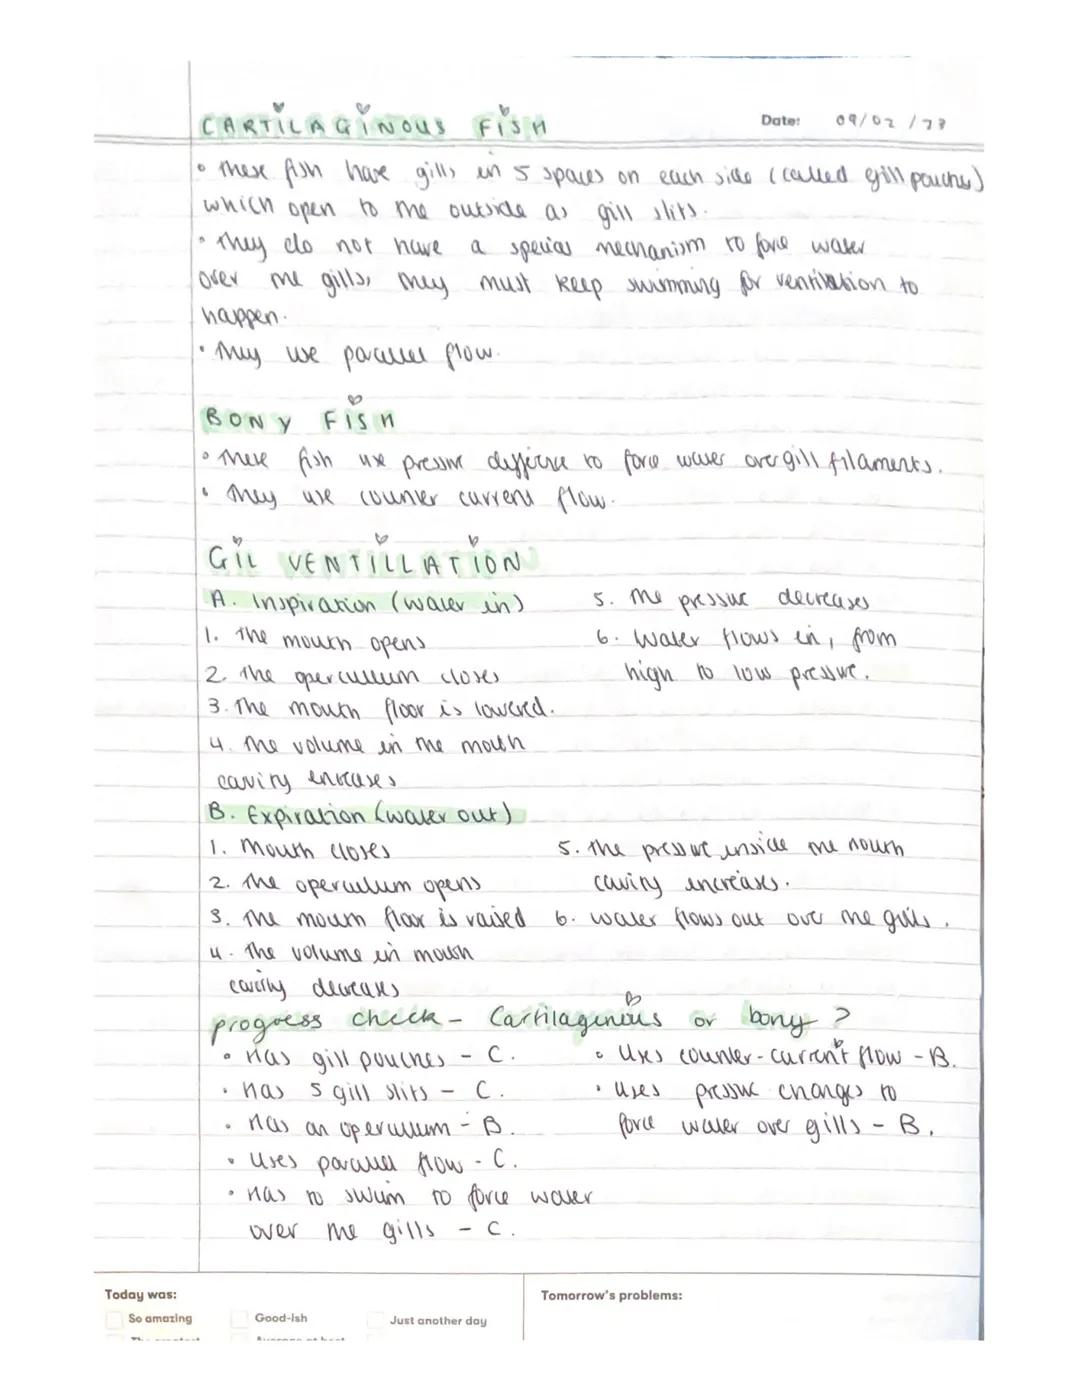 CARTILAGINOUS FISH
Date: 09/02/23
• These fish have gills in 5 spaces on each side (called gill pouches)
which open to the outside as gill slits.
• They do not have a special mechanism to force water
over the gills, they must keep swimming for ventilation to
happen.
• They use parallel flow.
BONY FISH
• These fish use pressure difference to force water over gill filaments.
• They use counter current flow.
GIL VENTILLATION
A. Inspiration (water in)
1. The mouth opens
2. The operculum closes
3. The mouth floor is lowered.
4. The volume in the mouth
cavity increases
5. The pressure decreases
6. Water flows in, from
high to low pressure.
B. Expiration (water out)
1. Mouth closes
2. The operculum opens
3. The mouth floor is raised
4. The volume in mouth
cavity decreases
5. The pressure inside the mouth
cavity increases.
6. water flows out over the gills.
progress check - Cartilaginous or bony?
• Has gill pouches - C.
• Has 5 gill slits - C.
• Has an operculum - B.
• Uses parallel flow - C.
• Has to swim to force water
over the gills - C.
• Uses counter-current flow - B.
• Uses pressure changes to
force water over gills - B.
Today was:
So amazing
Good-ish
Just another day
Tomorrow's problems: